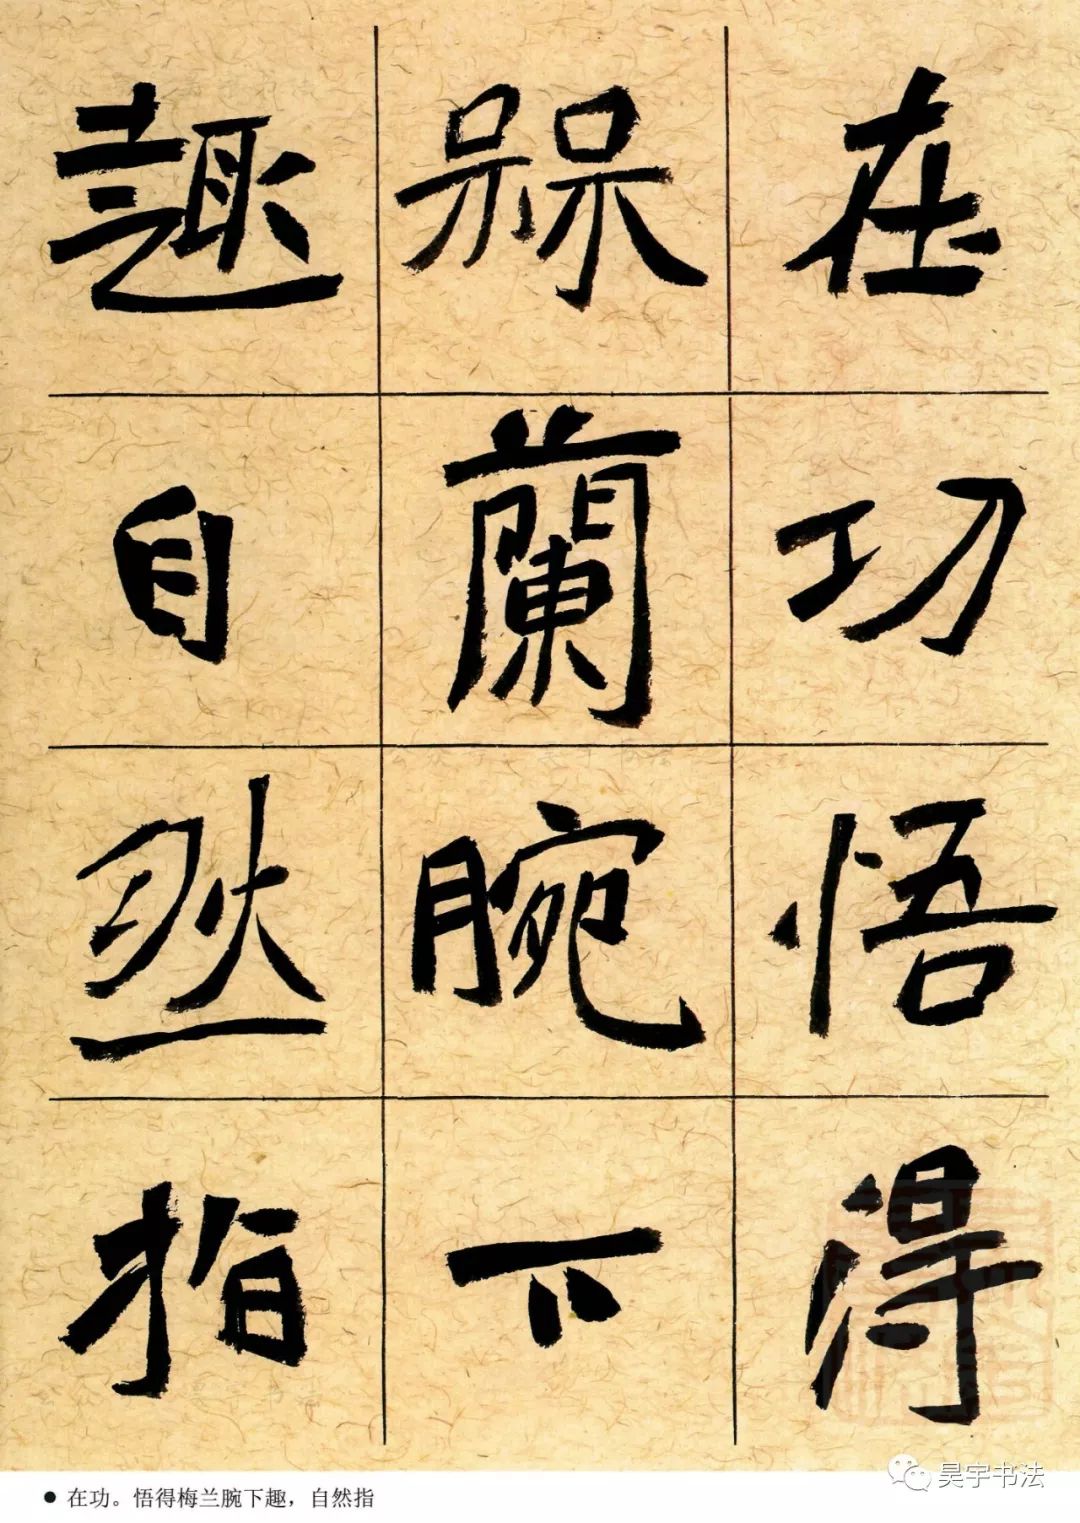 在功悟得
槑蘭腕下
趣自然指
● 在功。悟得梅兰腕下趣，自然指
昊宇书法